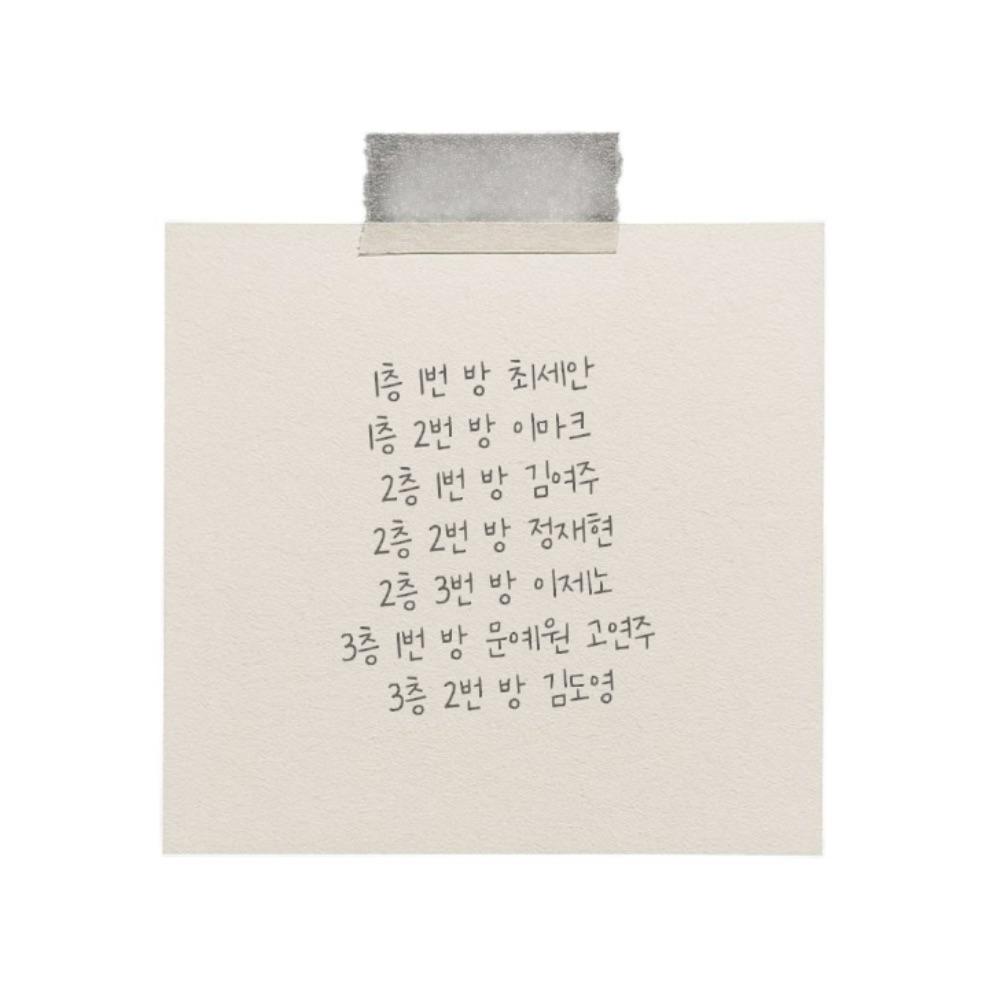 1층 1번 방 최세안
1층 2번 방 이마크
2층 1번 방 김여주
2층 2번 방 정재현
2층 3번 방 이제노
3층 1번 방 문예원 고연주
3층 2번 방 김도영